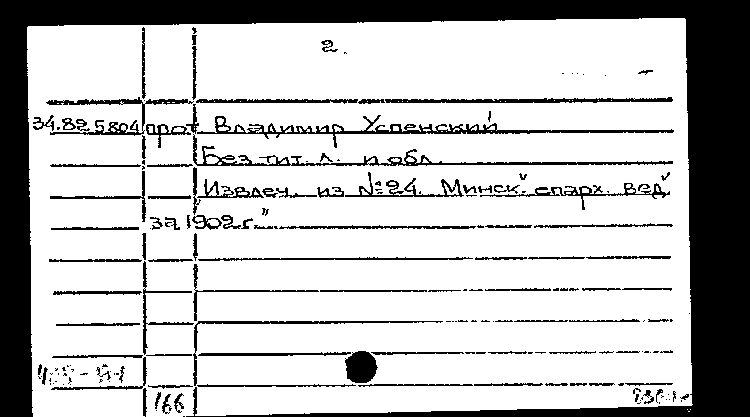 2.
34.82.5804 прот. Владимир Успенский
Без тит. л. и обл.
Извлеч. из № 24. Минск. епарх. вед."
за 1902 г."
166